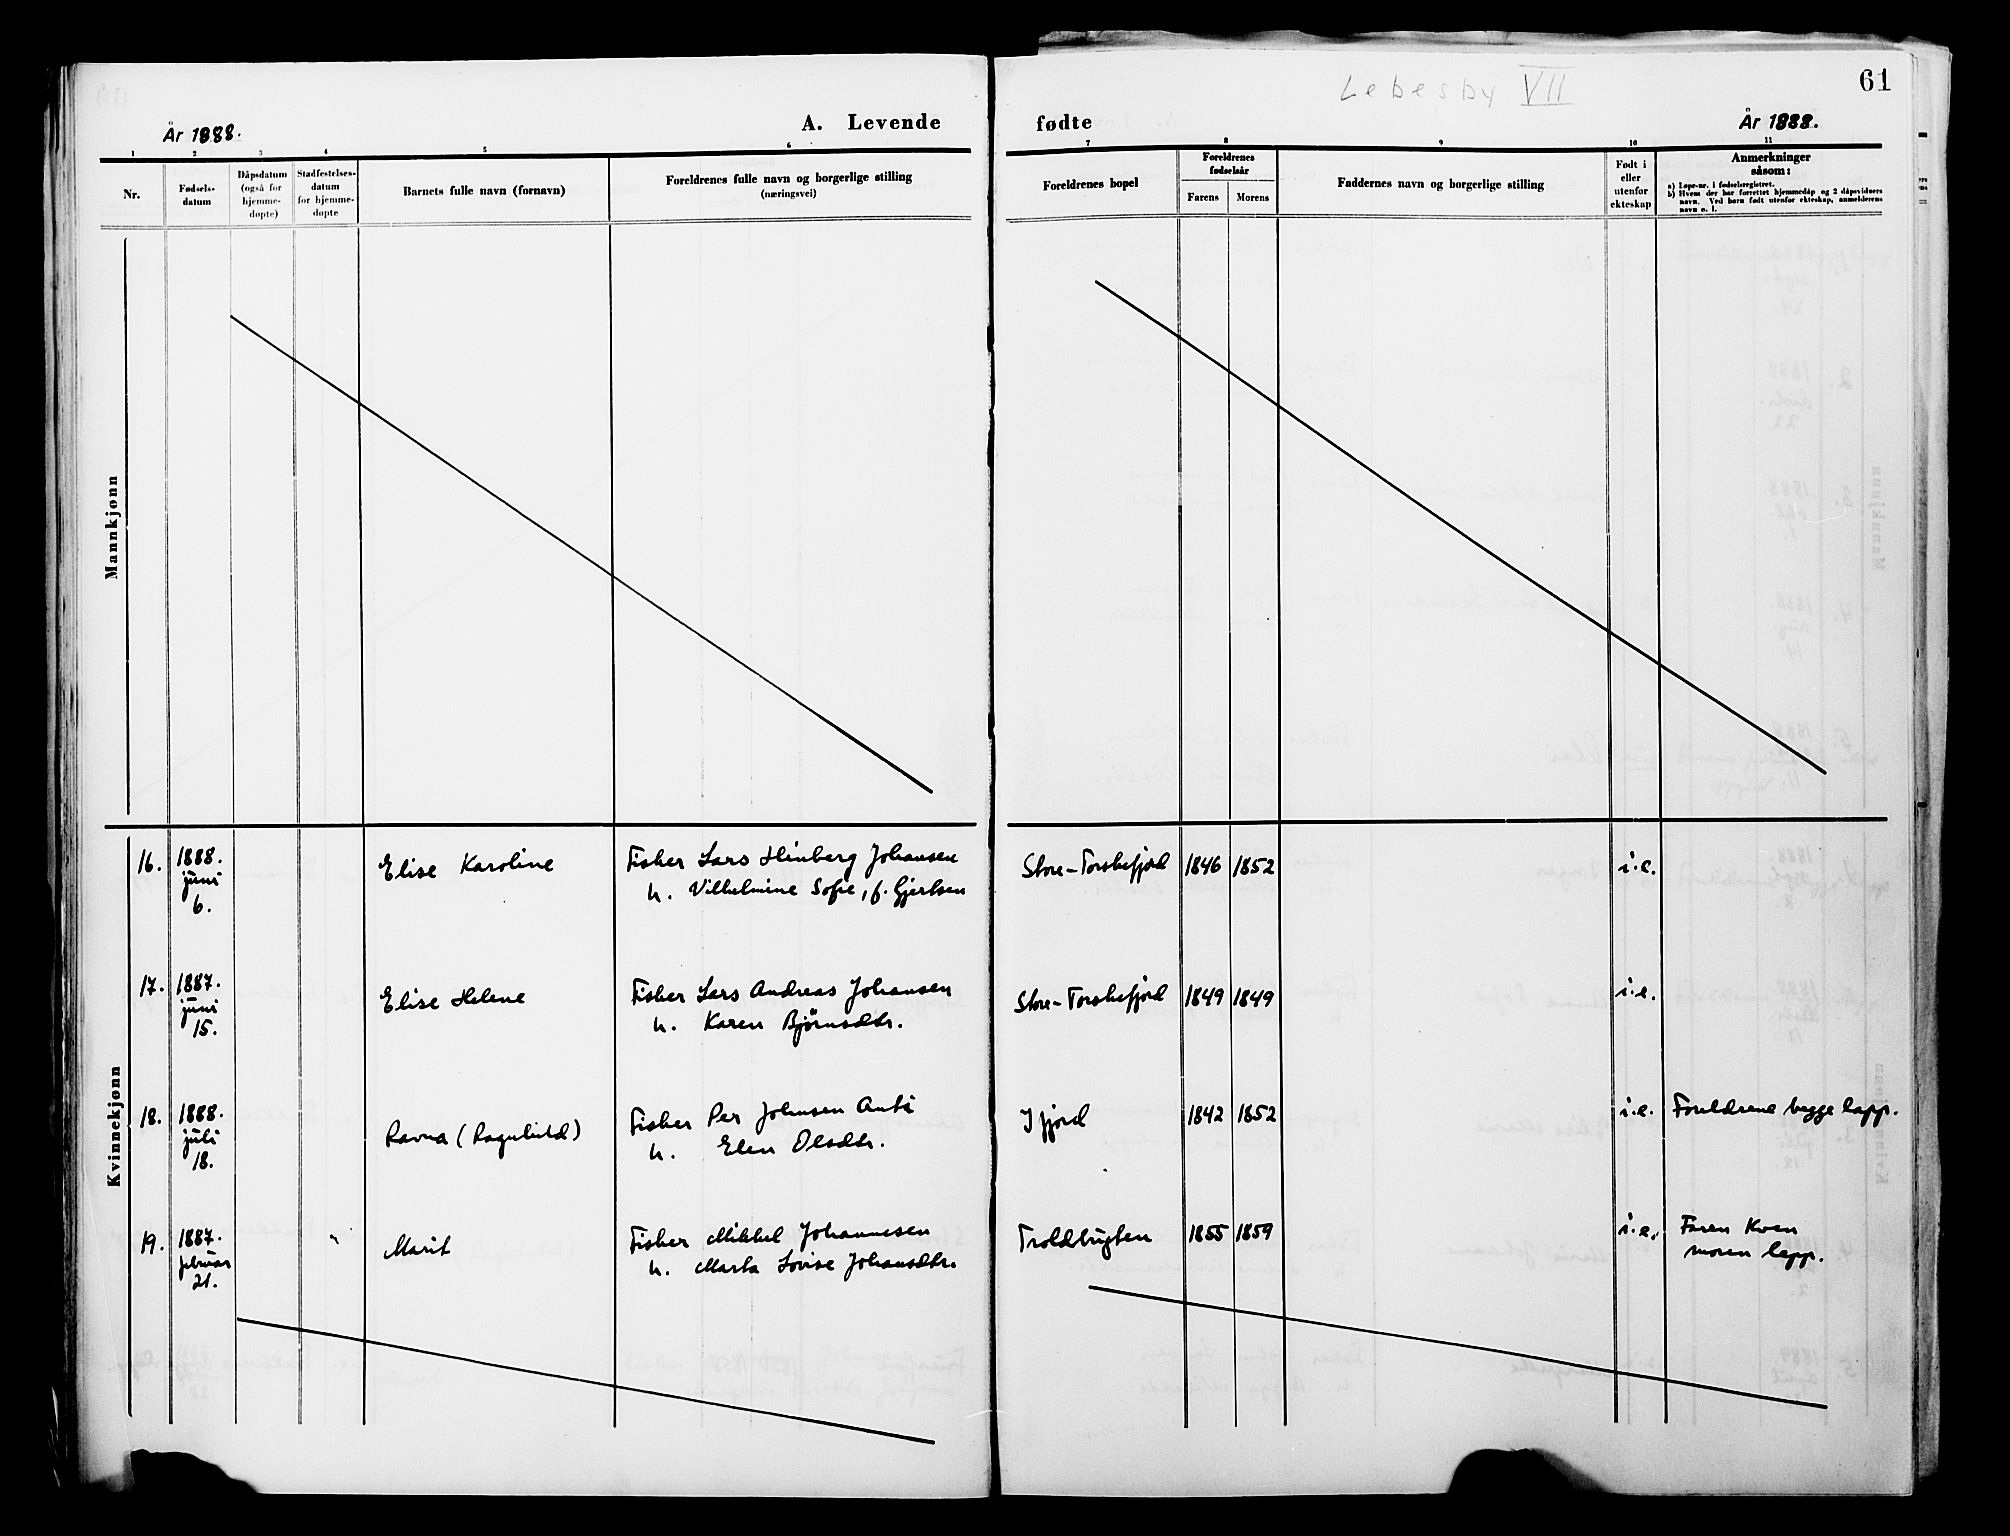 Lebesby VII
61
År 1888.
A. Levende
fødte
År 1888.
1 2 3 4 5 6
7 8 9 10 11
Nr.
Fødsels-
datum
Dåpsdatum
(også for
hjemme-
døpte)
Stadfestelses-
datum
for hjemme-
døpte
Barnets fulle navn (fornavn)
Foreldrenes fulle navn og borgerlige stilling
(næringsvei)
Foreldrenes bopel
Foreldrenes
fødselsår
Farens
Morens
Faddernes navn og borgerlige stilling
Født i
eller
utenfor
ekteskap
Anmerkninger
såsom:
a) Løpe-nr. i fødselsregistret.
b) Hvem der har forrettet hjemmedåp og 2 dåpsvidners
navn. Ved barn født utenfor ekteskap, anmelderens
navn o. l.
Mannkjønn
Kvinnekjønn
16.
1888.
juni
6.
Elise Karoline
Fisker Lars Hinberg Johansen
h. Vilhelmine Sofie, f. Gjertsen
Store-Torskefjord
1846
1852
i.e.
17.
1887.
juni
15.
Elise Helene
Fisker Lars Andreas Johansen
h. Karen Bjørnsdtr.
Store-Torskefjord
1849
1849
i.e.
18.
1888.
juli
18.
Ravna (Ragnhild)
Fisker Per Johnsen Anti
h. Elen Olsdtr.
Ifjord
1842
1852
i.e.
Foreldrene begge lapp.
19.
1887.
februar
21.
Marit
Fisker Mikkel Johannesen
h. Marta Lovise Johansdtr.
Troldbugten
1855
1859
i.e.
Faren Kven
moren lapp.